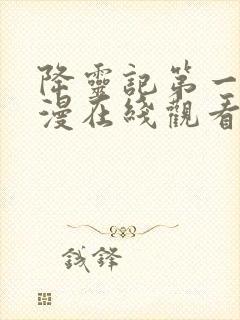 降靈記第一
漫在綫觀看
钱鋒